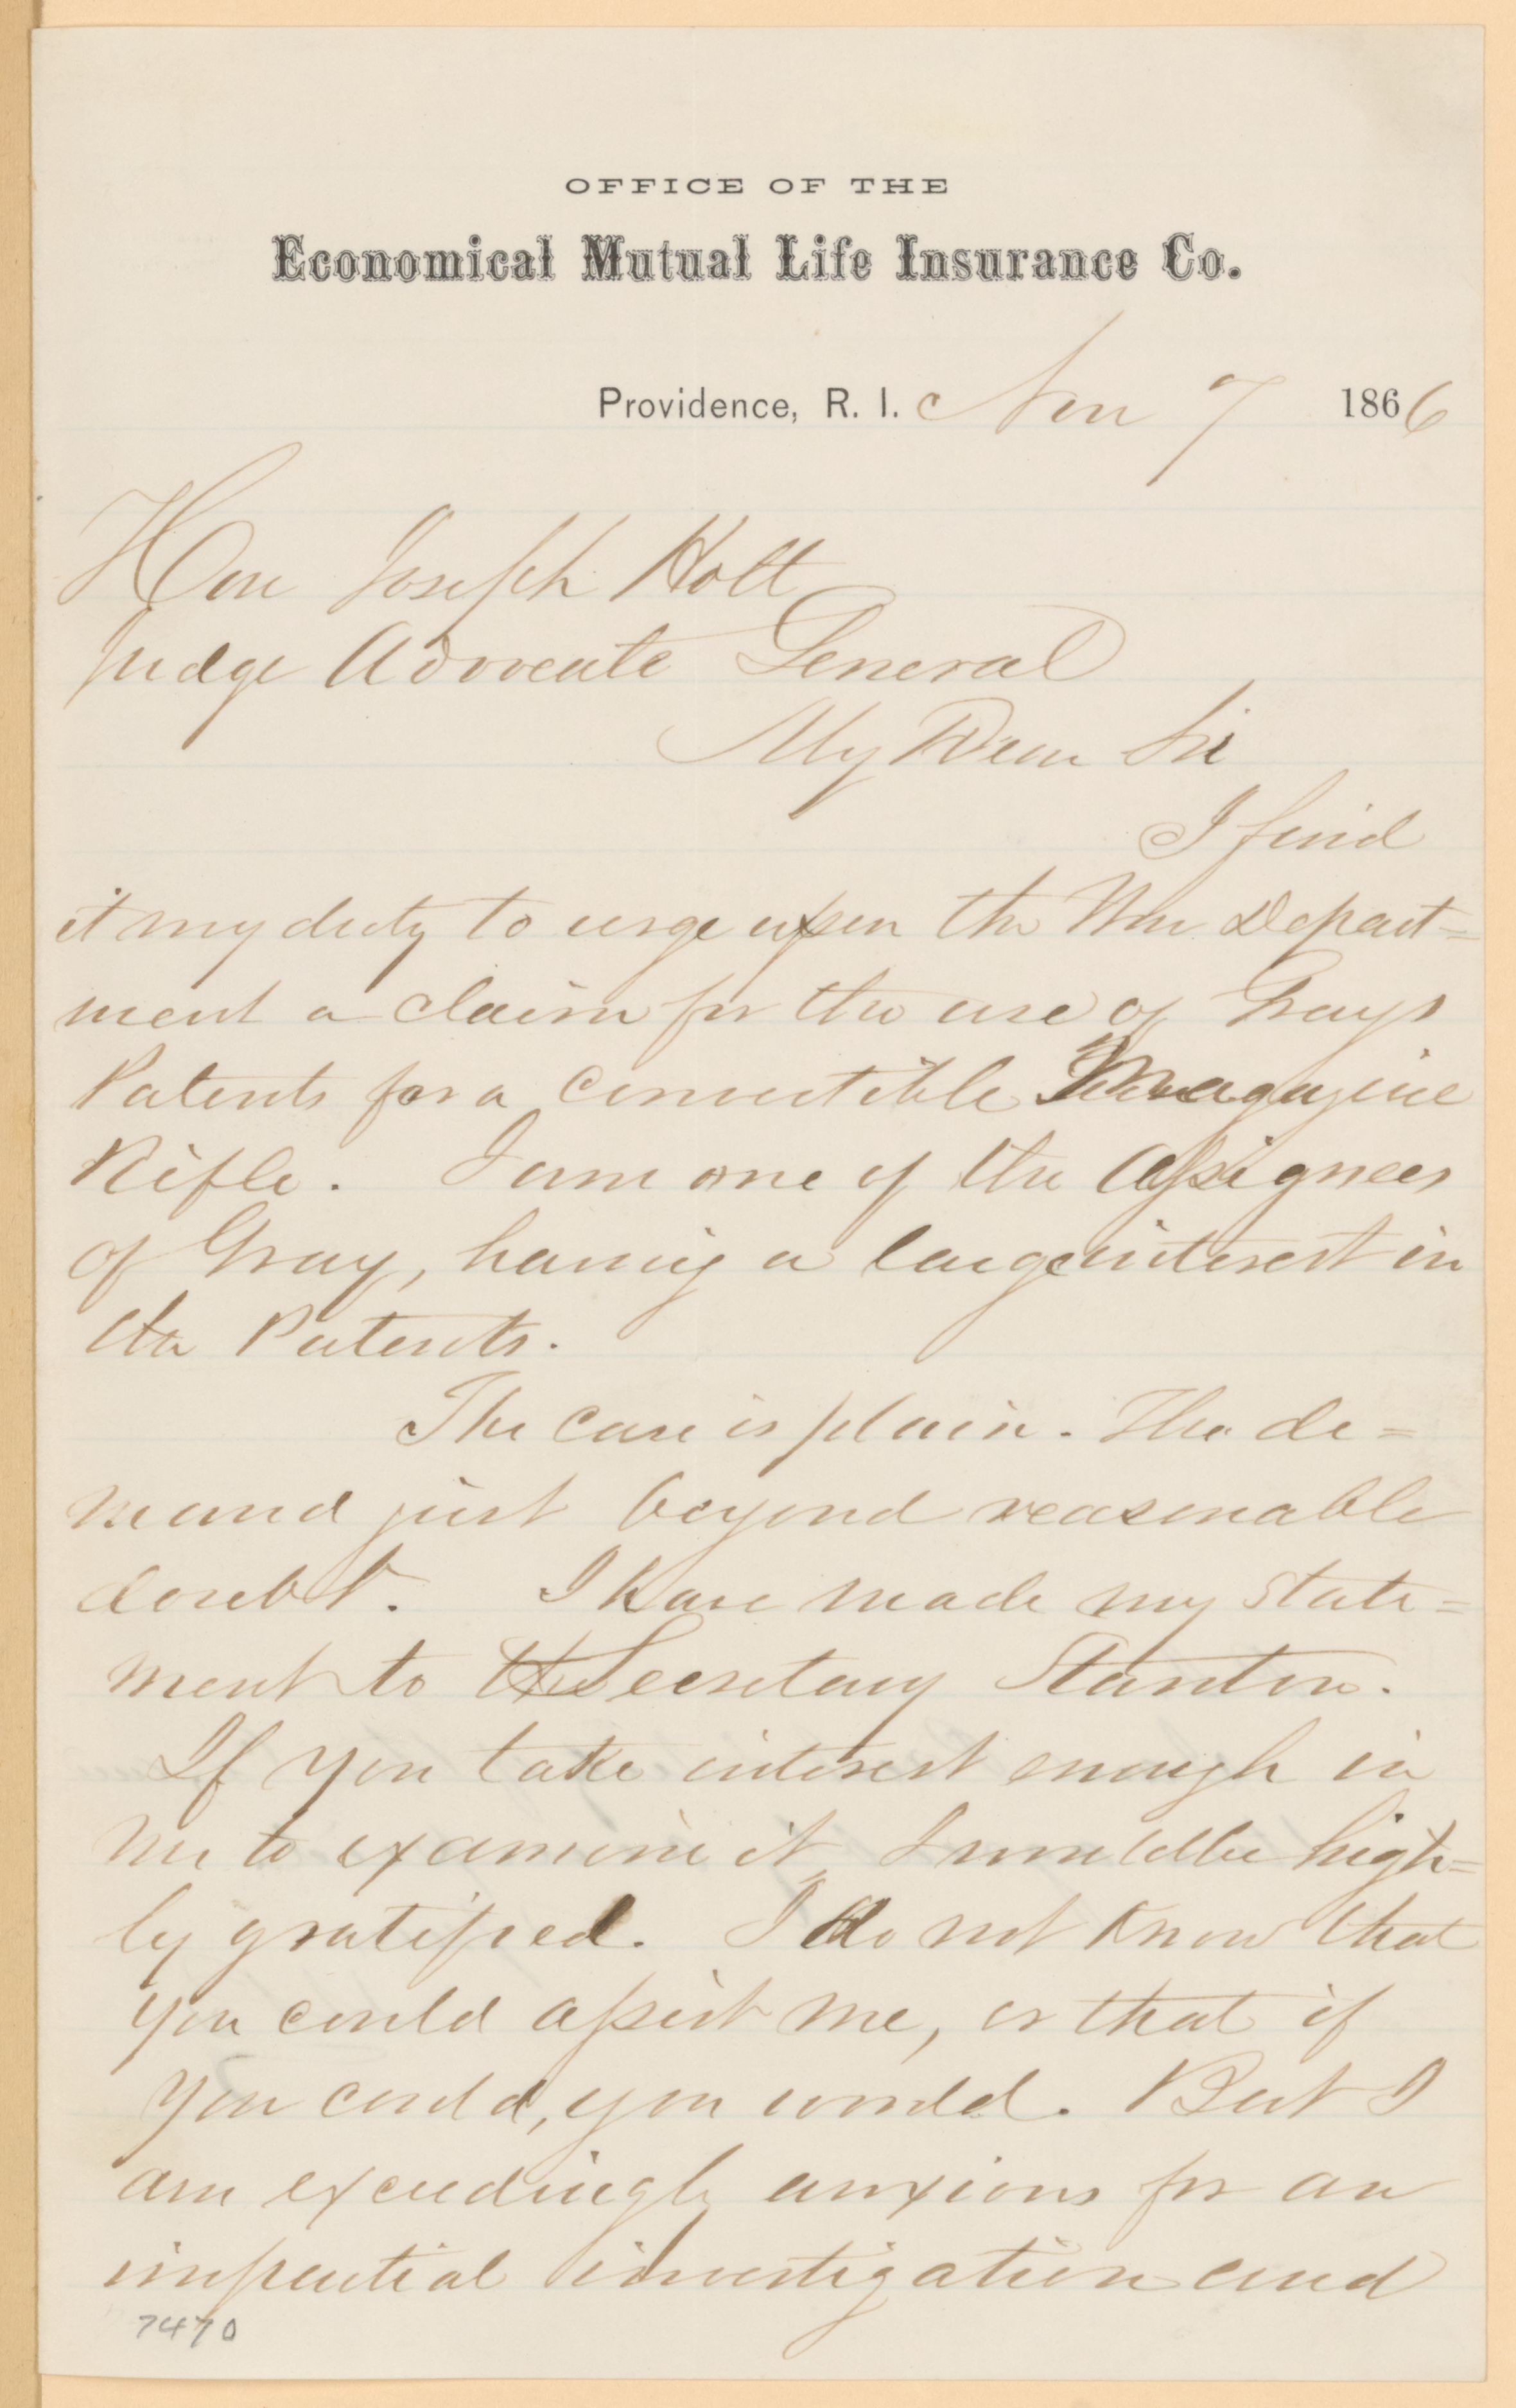 OFFICE OF THE
Economical Mutual Life Insurance Co.
Providence, R. I. Nov 7 1866
Hon Joseph Holt
Judge Advocate General
My Dear Sir
I find
it my duty to urge upon the War Depart=
ment a claim for the use of Grays
Patents for a convertible Magazine
Rifle. I am one of the Assignees
of Gray, having a large interest in
the Patents.
The case is plain. The de=
mand just beyond reasonable
doubt. I have made my state=
ment to Secretary Stanton.
If you take interest enough in
me to examine it, I would be high=
ly gratified. I do not know that
you could assist me, or that if
you could, you would. But I
am exceedingly anxious for an
impartial investigation and
7470